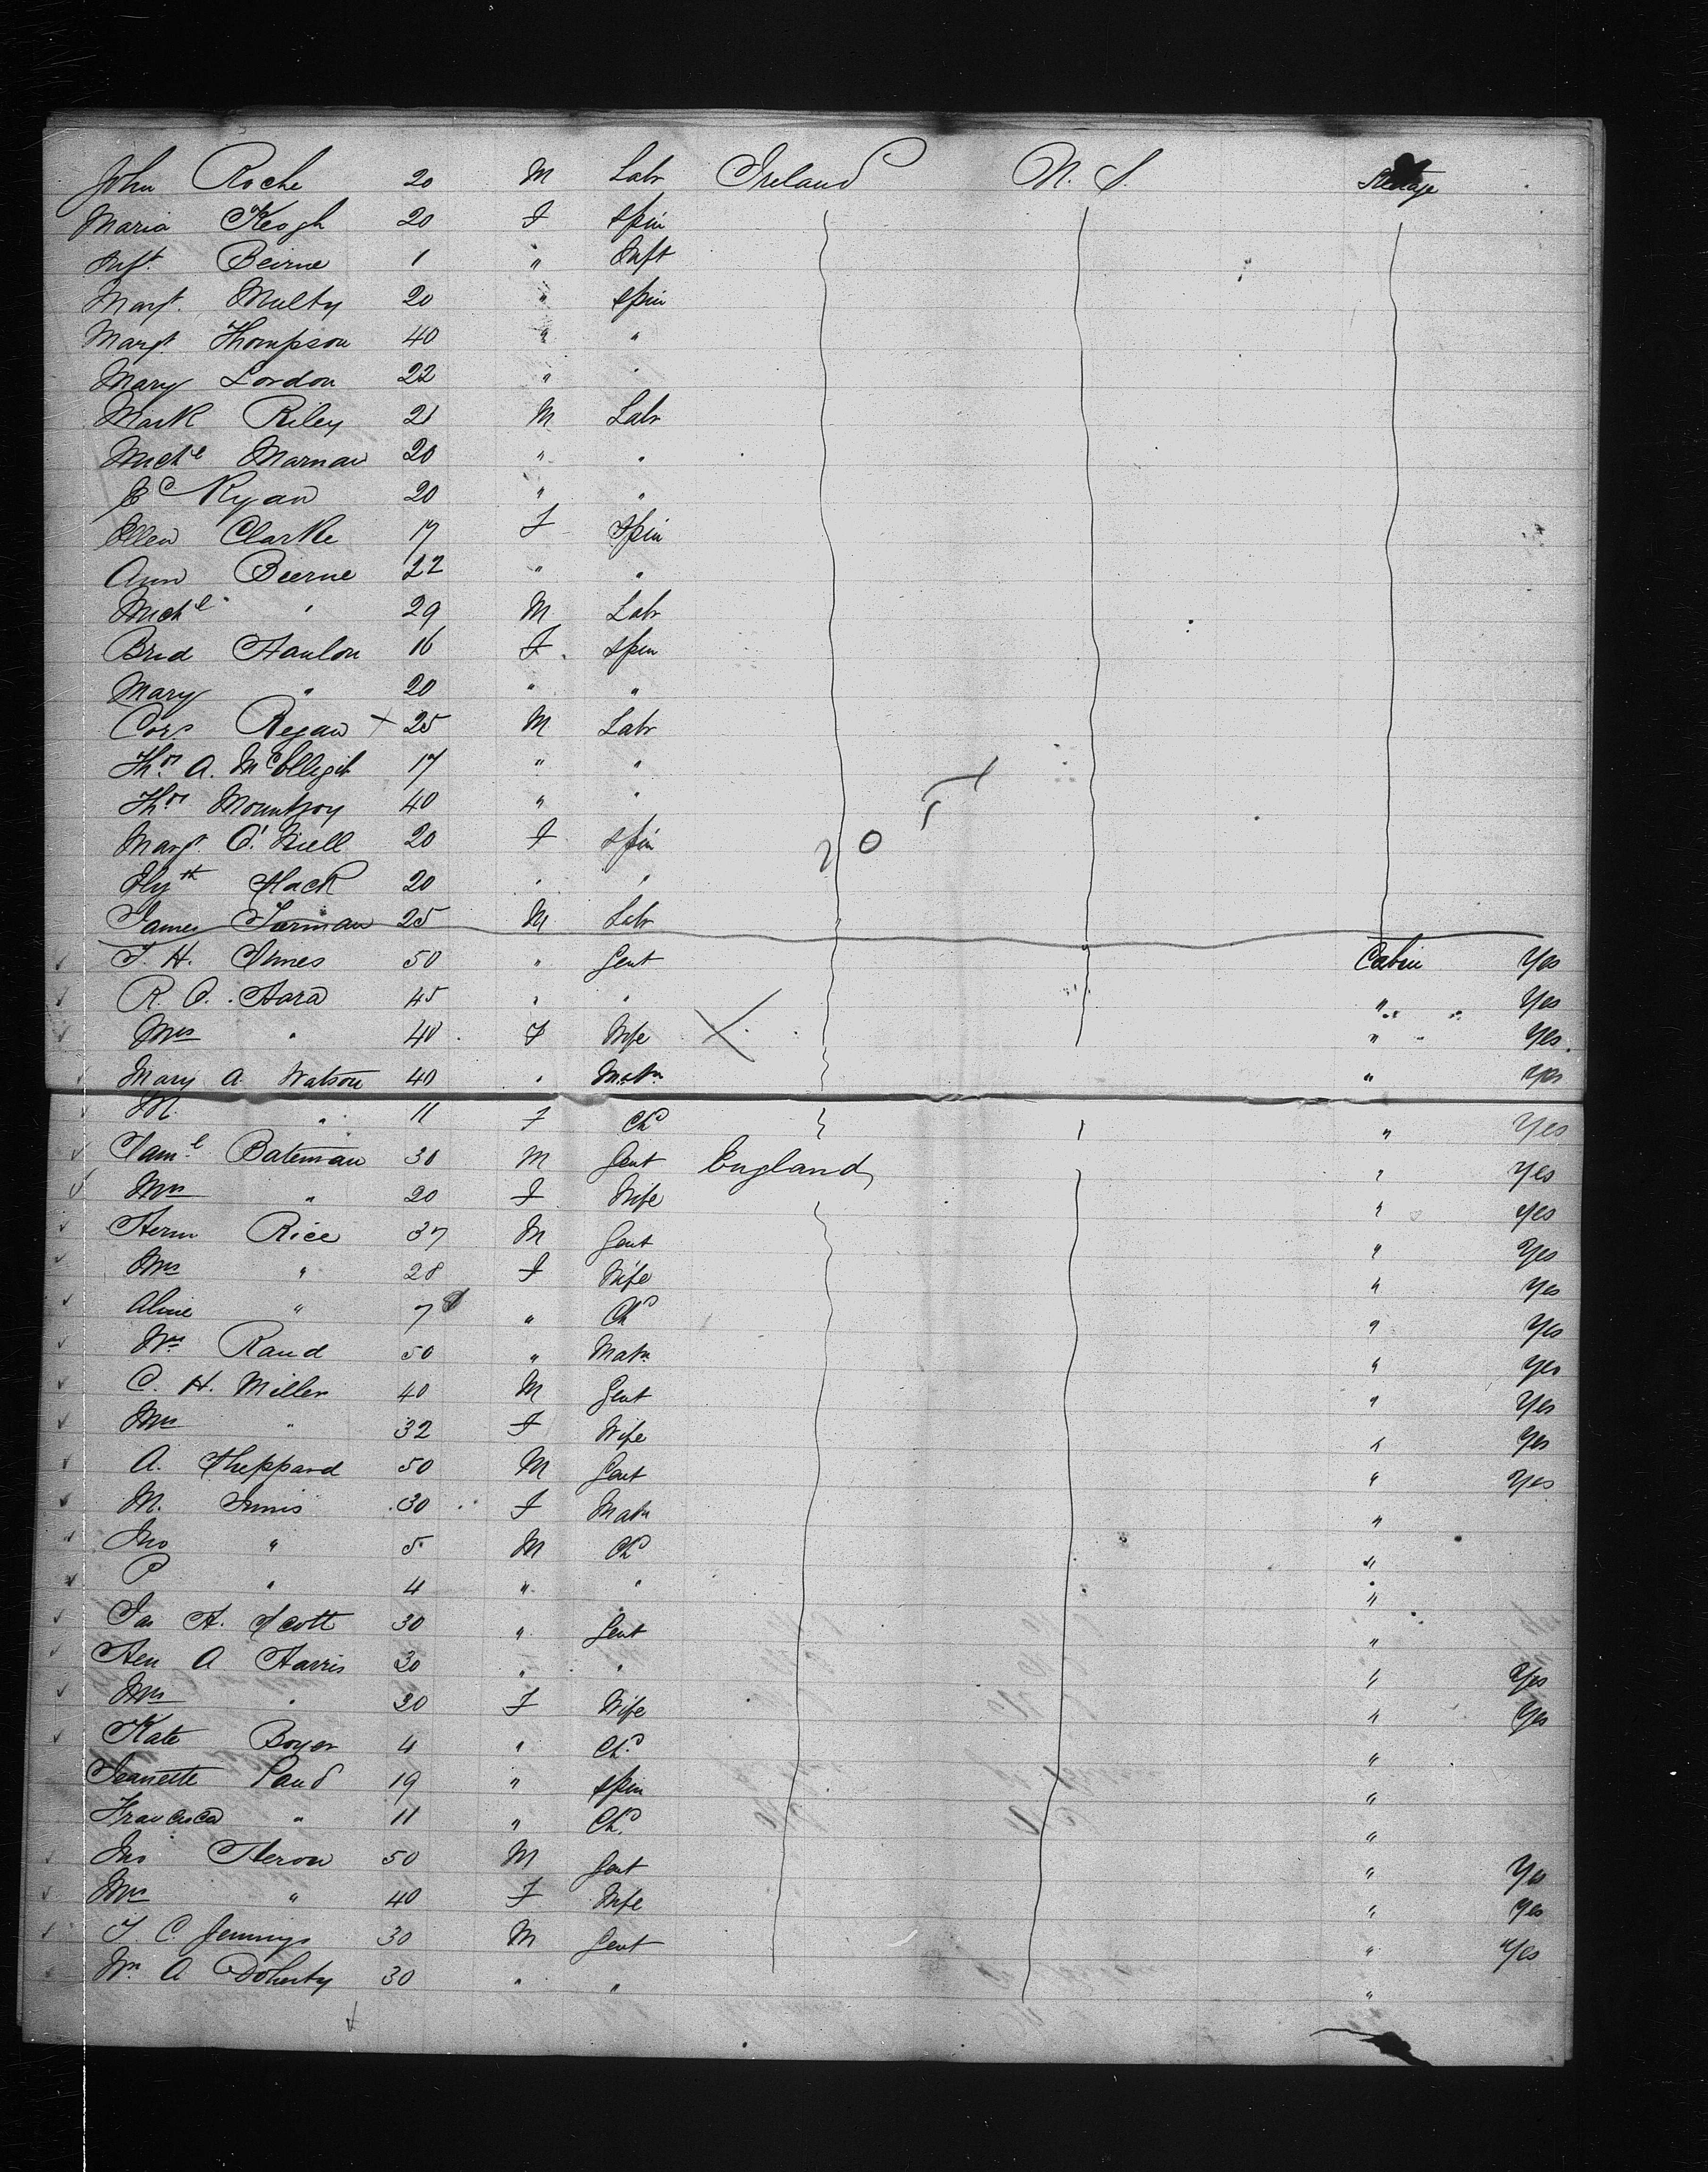 John Roche 20 M Labr Ireland U. S. Steerage
Maria Keogh 20 F Spin
Inft. Beirne 1 " Inft
Margt. Multy 20 " Spin
Margt. Thompson 40 " "
Mary Lordon 22 " "
Mark Riley 21 M Labr
Michl Marnan 20 " "
Ryan 20 " "
Ellen Clarke 17 F Spin
Ann Beirne 22 " "
Michl. " 29 M Labr
Brid Hanlon 16 F Spin
Mary " 20 " "
Cors Regan 25 M Labr
Thos. A. McElligit 17 " "
Thos Mountjoy 40 " "
Margt. O'Niell 20 F Spin
Elizth Slack 20 " "
James Tierman 25 M Labr
50 " Gent Cabin Yes
R. O. Hara 45 " " " Yes
Mrs " 40 F Wife " Yes
Mary A. Watson 40 " Matn " Yes
M. " 11 F Chd " Yes
Saml. Bateman 30 M Gent England " Yes
Mrs " 20 F Wife " Yes
Herm Rice 37 M Gent " Yes
Mrs " 28 F Wife " Yes
Aline " 7 " Chd " Yes
Rand 50 " Matn " Yes
C. H. Miller 40 M Gent " Yes
Mrs " 32 F Wife " Yes
A. Sheppard 50 M Gent " Yes
M. Innis 30 F Matn "
Jno " 5 M Chd "
P " 4 " " "
Jas H. Scott 30 " Gent "
Hen A Harris 30 " " " Yes
Mrs " 20 F Wife " Yes
Kate Boyer 4 " Chd "
Jeanette Paud 19 " Spin "
Francisca " 11 " Chd "
Jno Heron 50 M Gent " Yes
Mrs " 40 F Wife " Yes
T. C. Jennings 30 M Gent " Yes
Wm. A Doherty 30 " " "